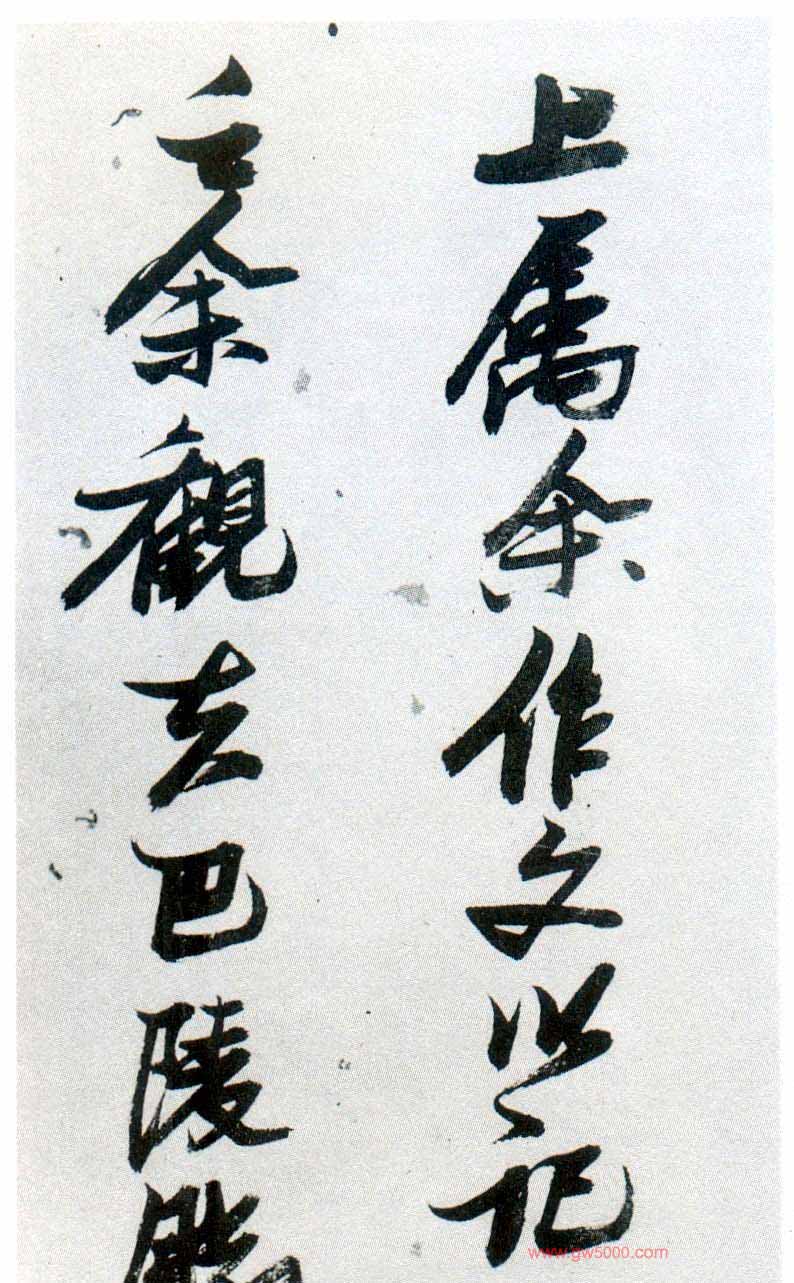 上属余作文以記
之余觀夫巴陵勝
www.gw5000.com